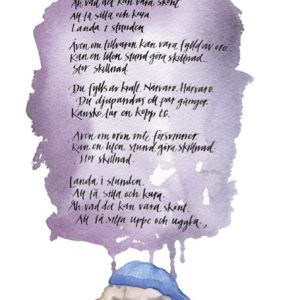 Ah vad det kan vara skönt.
Att få sitta och kura.
Landa i stunden.
Även om tillvaron kan vara fylld av oro.
Kan en liten stund göra skillnad.
Stor skillnad.
Du fylls av kraft. Närvaro. Härvaro.
Du djupandas ett par gånger.
Kanske tar en kopp te.
Även om oron inte försvinner.
Kan en liten stund göra skillnad.
Stor skillnad.
Landa i stunden.
Att få sitta och kura.
Ah vad det kan vara skönt.
Att få sitta uppe och uggla.